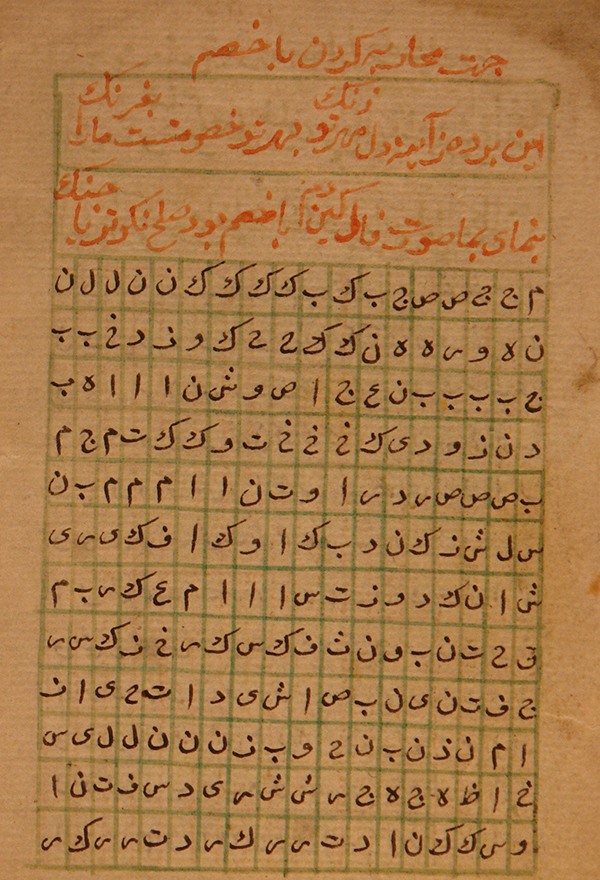 جهت محاربه کردن با خصم
زنک بغرنک
این بوده ز آینه دل مهر تو بهر تو خصومتست مارا
جنک
بنمای بما صوت فال کین با خصم بود صلح نکو تو یا
م ج ج ص ص ج ب ک ب ک ک ک ک ن ن ل ل ن
ن ه و ر ه ه ن ک ک ح ح ک و ز د خ ب ب
ج ب ب ب ب ن ع ج ا ص و ش ن ا ا ا ه ب
د ن ز و د ی ک خ خ خ ت و ک ک ت م ج م
ب ص ص ص ر د ر ا و ت ن ا ا م م م ب ن
س ل ش ز ک ن د ب ک ا و ک ا ف ک ی ر ی
ش ا ن ک د و ز ت س ا ا ا م ع ک ر ب م
ق ح ت ن ب و ن ث ف ک س ک ر خ ز ک س ر
ج ف ت ن ی ل ب ص ا ش ی د ا ت ح ی ا ز
ا م ن ذ ن ب ن ح و ب ز ن ن ن ل ل ی س
خ ا ظ ه ج ه ج ر ش ش ر ی د س ف ت ن ا
و س ک ک ن ا د ت ر ر ک ر د ت ر ر ک ر